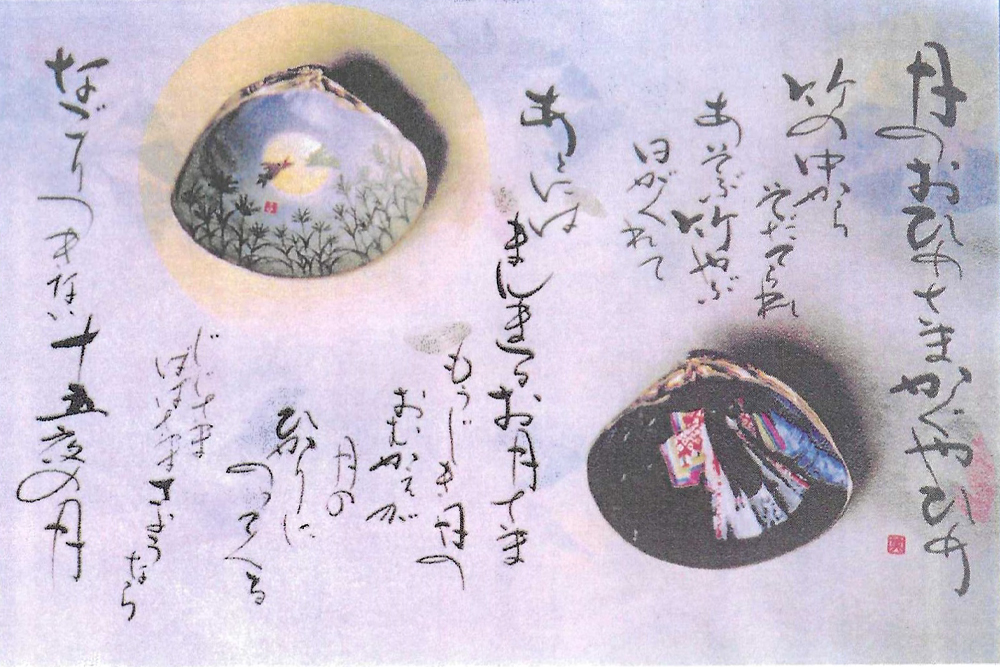 月のおひめさまかぐやひめ
竹の中から
そだてられ
あそぶ竹やぶ
日がくれて
あとには
まんまるお月さま
もうじき月の
おむかえが
月の
ひかりに
のってくる
じじさま
ばばさま
さようなら
なごりつきない十五夜の月